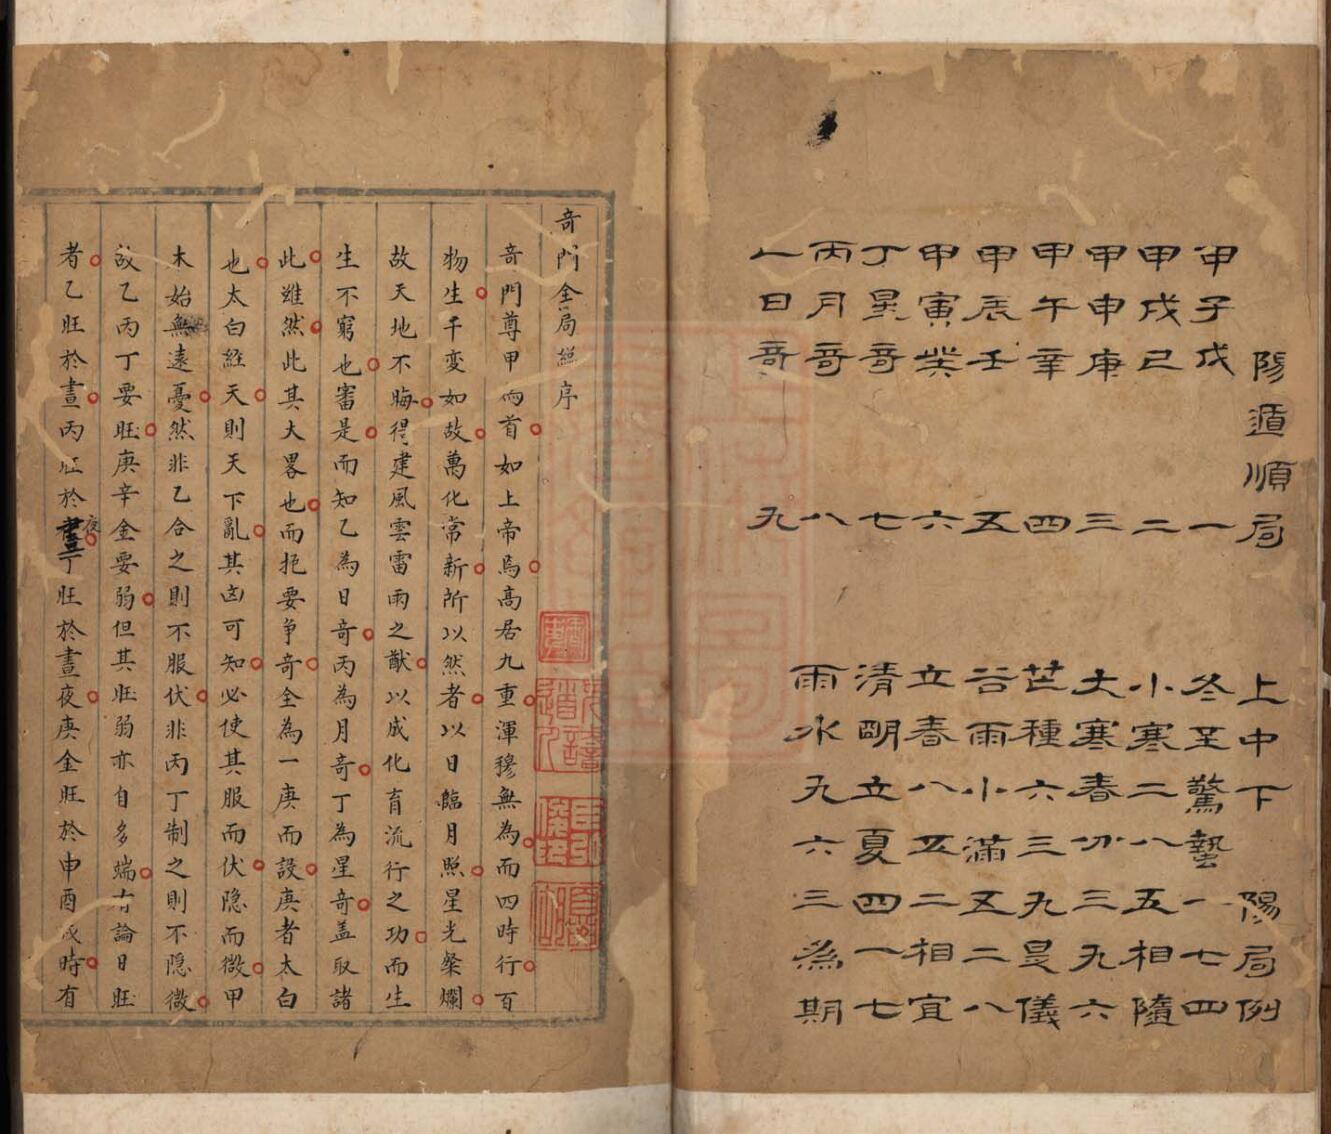 陽遁順局
甲子戊 一
甲戌己 二
甲申庚 三
甲午辛 四
甲辰壬 五
甲寅癸 六
丁星奇 七
丙月奇 八
乙日奇 九
上中下 陽局例
冬至驚蟄一七四
小寒二八五相隨
大寒春分三九六
芒種六三九是儀
谷雨小滿五二八
立春八五二相宜
清明立夏四一七
雨水九六三為期
奇門全局總序
奇門尊甲而首如上帝焉高居九重渾穆無為而四時行百
物生千變如故萬化常新所以然者以日臨月照星光粲爛
故天地不晦得建風雲雷雨之猷以成化育流行之功而生
生不窮也審是而知乙為日奇丙為月奇丁為星奇盖取諸
此雖然此其大畧也而扼要争奇全為一庚而設庚者太白
也太白經天則天下亂其凶可知必使其服而伏隐而微甲
木始無遠憂然非乙合之則不服伏非丙丁制之則不隐微
故乙丙丁要旺庚辛金要弱但其旺弱亦自多端有論日旺
者乙旺於晝丙旺於夜丁旺於晝夜庚金旺於申酉戌時有